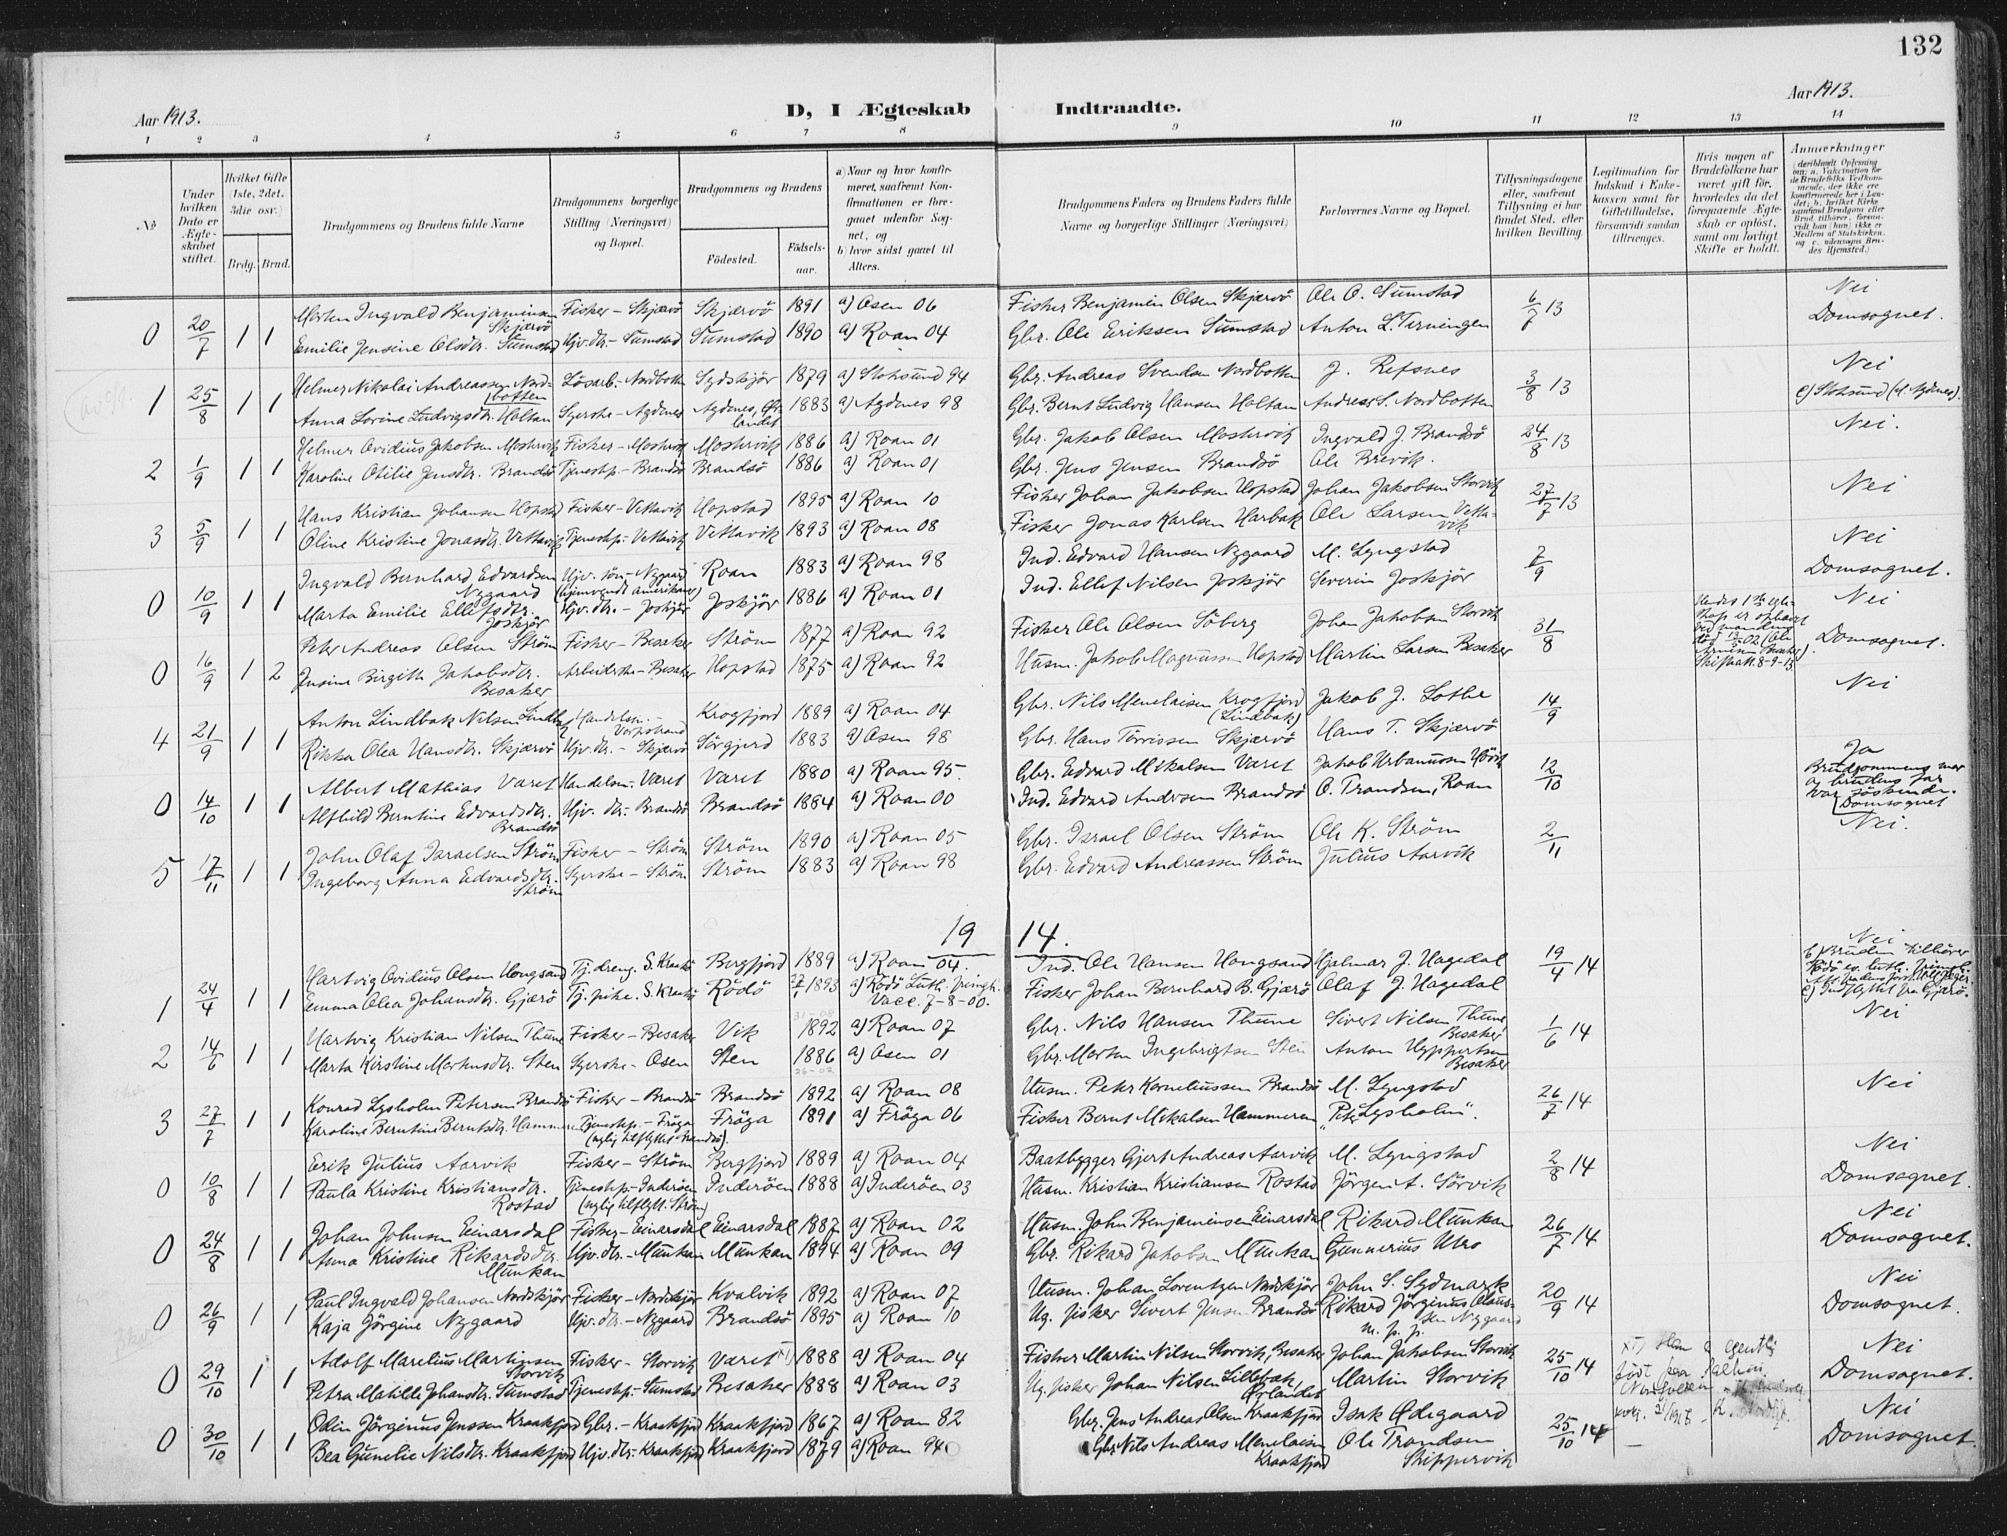 132
Aar 1913.
D, I Ægteskab Indtraadte.
Aar 1913.
1 2 3 4 5 6 7 8 9 10 11 12 13 14
No
Under hvilken Dato er Ægteskabet stiftet.
Hvilket Gifte (1ste, 2det, 3die osv.)
Brdg. Brud.
Brudgommens og Brudens fulde Navne
Brudgommens borgerlige Stilling (Næringsvei) og Bopæl.
Brudgommens og Brudens
Födested.
Födselsaar.
a) Naar og hvor konfirmeret, saafremt Konfirmationen er foregaaet udenfor Sognet, og
b) hvor sidst gaaet til Alters.
Brudgommens Faders og Brudens Faders fulde Navne og borgerlige Stillinger (Næringsvei)
Forlovernes Navne og Bopæl.
Tillysningsdagene eller, saafremt Tillysning ei har fundet Sted, efter hvilken Bevilling.
Legitimation for Indskud i Enkekassen samt for Giftetilladelse, forsaavidt saadan tiltrænges.
Hvis nogen af Brudefolkene har været gift för, hvorledes da det foregaaende Ægteskab er oplöst, samt om lovligt Skifte er holdt.
Anmærkninger
0 20/7 1 1 Morten Ingvald Benjaminsen Skjærvö Fisker - Skjærvö Skjærvö 1891 a) Osen 06 Fisker Benjamin Olsen Skjærvö Ole O. Sumstad 6/7 13 Nei
Emilie Jensine Olsdtr. Sumstad Hjv. dtr. - Sumstad Sumstad 1890 a) Roan 04 Gbr. Ole Eriksen Sumstad Anton L. Terningen Domsognet.
1 25/8 1 1 Helmer Nikolai Andreassen Nordbotten Lösarb. - Nordbotten Sydskjör 1879 a) Stoksund 94 Gbr. Andreas Svendsen Nordbotten J. Refsnes 3/8 13 Nei
Anna Lovine Ludvigsdtr. Holtan Syerske - Agdenes Agdenes, 1883 a) Agdenes 98 Gbr. Bernt Ludvig Hansen Holtan Andreas S. Nordbotten
2 1/9 1 1 Helmer Ovidius Jakobsen Moskvik Fisker - Moskvik Moskvik 1886 a) Roan 01 Gbr. Jakob Olsen Moskvik Ingvald J. Brandsö 24/8 13 Nei.
Karoline Otilie Jensdtr. Brandsö Tjenestp. - Brandsö Brandsö 1886 a) Roan 01 Gbr. Jens Jensen Brandsö Ole Brevik.
3 5/9 1 1 Hans Kristian Johansen Hopstad Fisker - Vettavik Hopstad 1895 a) Roan 10 Fisker Johan Jakobsen Hopstad Johan Jakobsen Storvik 27/7 13 Nei
Oline Kristine Jonasdtr. Vettavik Tjenestp. - Vettavik Vettavik 1893 a) Roan 08 Fisker Jonas Karlsen Harbak Ole Larsen Vettavik
0 10/9 1 1 Ingvald Bernhard Edvardsen Nygaard Hjv. sön - Nygaard (hjemvendt amerikaner) Roan 1883 a) Roan 98 Ind. Edvard Hansen Nygaard M. Lyngstad 7/9 Nei
Marta Emilie Ellefsdtr. Joskjör Hjv. dtr. - Joskjör Joskjör 1886 a) Roan 01 Ind. Ellef Nilsen Joskjör Severin Joskjör Domsognet.
0 16/9 1 2 Peter Andreas Olsen Ström Fisker - Besaker Ström 1877 a) Roan 92 Fisker Ole Olsen Söberg Johan Jakobsen Storvik 31/8 Nei
Jensine Birgitte Jakobsdtr. Besaker Arbeiderske - Besaker Hopstad 1875 a) Roan 92 Husm. Jakob Magnussen Hopstad Martin Larsen Besaker Domsognet.
4 21/9 1 1 Anton Lindbak Nilsen Handelsm. - Vorpstrand Krogfjord 1889 a) Roan 04 Gbr. Nils Menelaisen Krogfjord (Lindbak) Jakob J. Lothe 14/9 Nei
Rikka Olea Hansdtr. Skjærvö Hjv. dtr. - Skjærvö Sörgjerd 1883 a) Osen 98 Gbr. Hans Törrissen Skjærvö Hans T. Skjærvö
0 14/10 1 1 Albert Mathias Været Handelsm. - Været Været 1880 a) Roan 95. Gbr. Edvard Mikalsen Været Jakob Urbanussen Hövik 12/10 Ja
Brudgommens mor og brudens far var söskende.
Alfhild Berntine Edvardsdtr. Brandsö Hjv. dtr. - Brandsö Brandsö 1884 a) Roan 00 Ind. Edvard Andersen Brandsö O. Trondsen, Roan Domsognet
5 17/11 1 1 John Olaf Israelsen Ström Fisker - Ström Ström 1890 a) Roan 05 Gbr. Israel Olsen Ström Ole K. Ström 2/11 Nei.
Ingeborg Anna Edvardsdtr. Ström Syerske - Ström Ström 1883 a) Roan 98 Gbr. Edvard Andreassen Ström Julius Aarvik
1914.
1 24/4 1 1 Hartvig Ovidius Olsen Hongsand Tj. dreng. S. Kraakö Bergfjord 1889 a) Roan 04. Ind. Ole Hansen Hongsand Hjalmar J. Hagedal 19/4 14 Nei
Emma Olea Johansdtr. Gjærö Tj. pike. S. Kraakö Rödö 1893 Vacc. 7-8-00. Fisker Johan Bernhard B. Gjærö Olaf J. Hagedal
c) Indflyttet fra Gjærö.
2 14/6 1 1 Hartvig Kristian Nilsen Thune Fisker - Besaker Vik 1892 a) Roan 07 Gbr. Nils Hansen Thune Sivert Nilsen Thune, Besaker 1/6 14 Nei
Marta Kirstine Mortensdtr. Sten Syerske - Osen Sten 1886 a) Osen 01 Gbr. Morten Ingebrigtsen Sten Anton Besaker
3 27/7 1 1 Konrad Lysholm Petersen Brandsö Fisker - Brandsö Brandsö 1892 a) Roan 08 Husm. Peter Korneliussen Brandsö M. Lyngstad 26/7 14 Nei
Karoline Berntine Berntsdtr. Hammeren Tjenestp. - Fröya Fröya 1891 a) Fröya 06 Fisker Bernt Mikalsen Hammeren "Peter Lysholm".
0 10/8 1 1 Erik Julius Aarvik Fisker - Ström Bergfjord 1889 a) Roan 04 Baatbygger Gjert Andreas Aarvik M. Lyngstad 2/8 14 Nei
Paula Kristine Kristiansdtr. Rostad Tjenestp. - Inderöen (nylig tilflytt. Ström) Inderöen 1888 a) Inderöen 03 Husm. Kristian Kristiansen Rostad Jörgen A. Sörvik Domsognet.
0 24/8 1 1 Johan Johnsen Einarsdal Fisker - Einarsdal Einarsdal 1887 a) Roan 02 Husm. John Benjaminsen Einarsdal Rikard Munkan 26/7 14 Nei
Anna Kristine Rikardsdtr. Munkan Hjv. dtr. - Munkan Munkan 1894 a) Roan 09 Gbr. Rikard Jakobsen Munkan Gunnerius Utro Domsognet.
0 26/9 1 1 Paul Ingvald Johansen Nordskjör Fisker - Nordskjör Kvalvik 1892 a) Roan 07 Husm. Johan Lorentzen Nordskjör John S. Sydmark 20/9 14 Nei
Kaja Jörgine Nygaard Hjv. dtr. - Nygaard Brandsö 1895 a) Roan 10 Ug. fisker Sivert Jensen Brandsö Rikard Jörginus Olaussen Nygaard m. p. p. Domsognet.
0 29/10 1 1 Adolf Marelius Martinsen Storvik Fisker - Storvik Været x) 1888 a) Roan 04 Fisker Martin Nilsen Storvik, Besaker Johan Jakobsen Storvik 25/10 14 Nei
Petra Matilde Johansdtr. Sumstad Tjenestp. - Sumstad Besaker 1888 a) Roan 03 Ug. fisker Johan Nilsen Lillebæk Örlandet Martin Storvik Domsognet.
0 30/10 1 1 Odin Jörginus Jenssen Kraakfjord Gbr. - Kraakfjord Kraakfjord 1867 a) Roan 82 Gbr. Jens Andreas Olsen Kraakfjord Isak Ödegaard 25/10 14 Nei
Bea Gunelie Nilsdtr. Kraakfjord Hjv. dtr. - Kraakfjord Kraakfjord 1879 a) Roan 94 Gbr. Nils Andreas Menelaisen Kraakfjord Ole Trondsen Skippervik Domsognet.